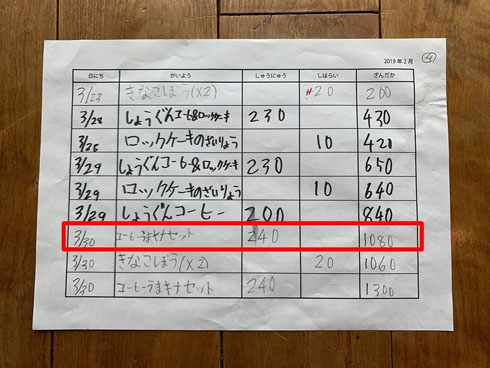 2019年2月 4
日にち がいよう しゅうにゅう しはらい ざんだか
3/23 きなこぼう(×2) 20 200
3/28 しょうぐんコーヒー&ロックケーキ 230 430
3/28 ロックケーキのざいりょう 10 420
3/29 しょうぐんコーヒー&ロックケーキ 230 650
3/29 ロックケーキのざいりょう 10 640
3/29 しょうぐんコーヒー 200 840
3/30 コーヒーうまキナセット 240 1080
3/30 きなこぼう(×2) 20 1060
3/30 コーヒーうまキナセット 240 1300